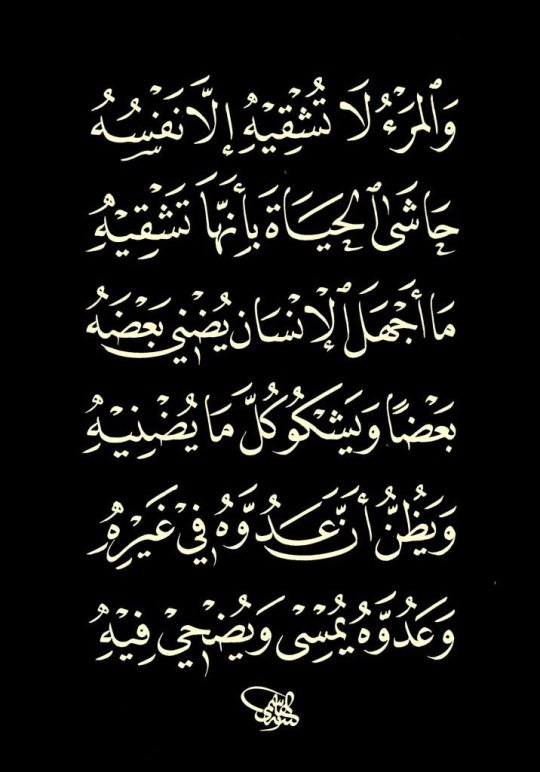 وَٱلمَرْءُ لَا تُشْقِيْهُ إِلَّا نَفْسُهُ
حَاشَى ٱلحَيَاةَ بِأَنَّهَا تَشْقِيْهُ
مَا أَجْهَلَ ٱلْإنْسَانَ يُضْنِي بَعْضَهُ
بَعْضًا وَيَشْكُو كُلَّ مَا يُضْنِيْهُ
وَيَظُنُّ أَنَّ عَدُوَّهُ فِيْ غَيْرِهُ
وَعَدُوَّهُ يُمْسْى وَيُضْحِيْ فِيْهُ